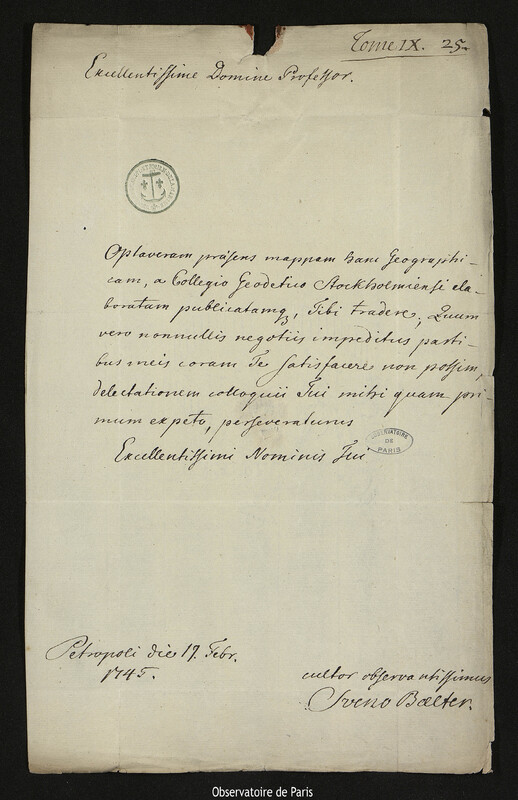 Tome IX. 25.
Excellentissime Domine Professor.
Optaveram präsens mappam hanc Geographi-
cam, a Collegio Geodetico Stockholmiensi ela-
boratam publicatamq, Tibi tradere; Quum
vero nonnullis negotiis impeditus parti-
bus meis coram Te satisfacere non possim,
delectationem colloquii Tui mihi quam pri-
mum expeto, perseveraturus
Excellentissimi Nominis Tui
OBSERVATOIRE
DE
PARIS
Petropoli die 17. Febr.
1745.
cultor observantissimus
Sveno Bælter.
Observatoire de Paris